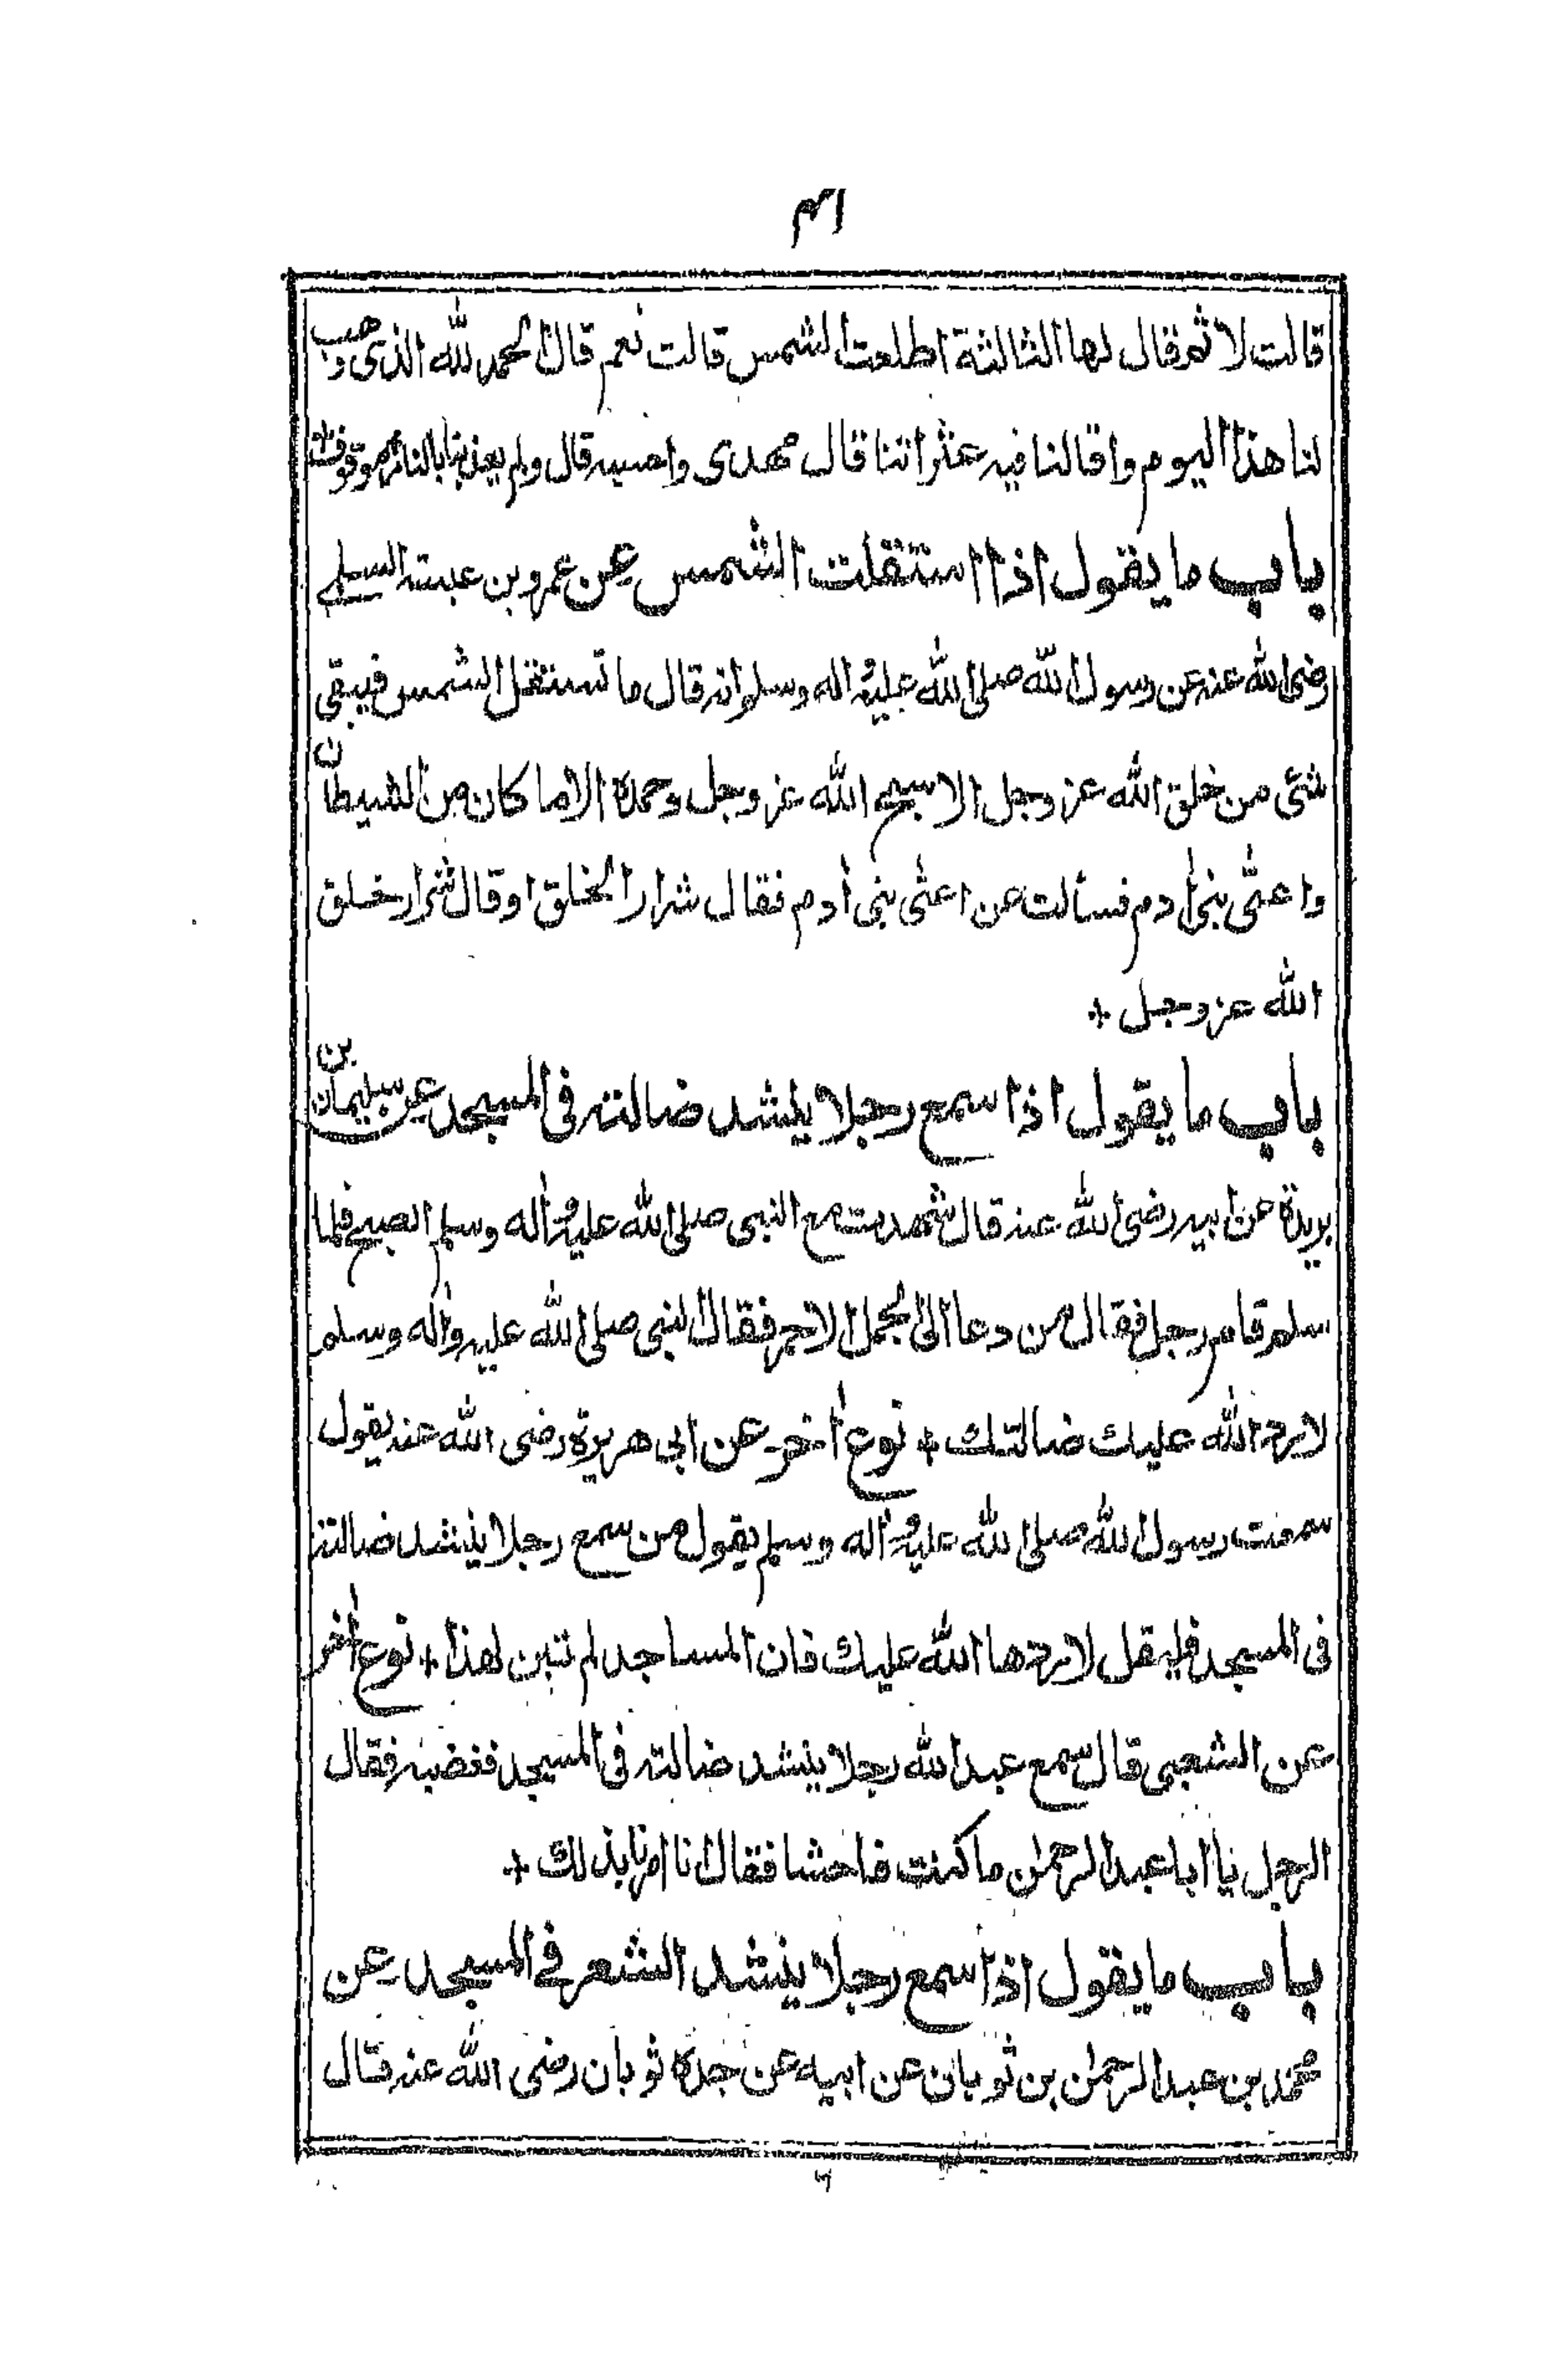 ۴۱
قالت لا ثم قال لها الثالثة اطلعت الشمس قالت نعم قال الحمد لله الذى وهب
لنا هذا اليوم واقالنا فيه عثراتنا قال مهدى واحسبه قال ولم يعذبنا بالنار موقوف
باب ما يقول اذا استقلت الشمس عن عمرو بن عبسة السلمے
رضى الله عنه عن رسول الله صلى الله عليه واله وسلم انه قال ما تستقل الشمس فيبقى
شئ من خلق الله عز وجل الا سبح الله عز وجل وحمده الا ما كان من الشيطان
واعتى بنى أدم فسألت عن اعتى بنى أدم فقال شرار الخلق او قال شرار خلق
الله عز وجل +
باب ما يقول اذا سمع رجلا ينشد ضالته فى المسجد عن سليمان بن
بريدة عن ابيه رضى الله عنه قال شهدت مع النبى صلى الله عليه وأله وسلم الصبح فلما
سلم قام رجل فقال من دعا الى الجمل الاحمر فقال النبى صلى الله عليه وأله وسلم
لا يرد الله عليك ضالتك + نوع أخر عن ابى هريرة رضى الله عنه يقول
سمعت رسول الله صلى الله عليه وأله وسلم يقول من سمع رجلا ينشد ضالته
فى المسجد فليقل لا يردها الله عليك فان المساجد لم تبن لهذا + نوع أخر
عن الشعبى قال سمع عبد الله رجلا ينشد ضالته فى المسجد فغضبه فقال
الرجل يا ابا عبد الرحمن ما كنت فاحشا فقال انا امرنا بذلك +
باب ما يقول اذا سمع رجلا ينشد الشعر فے المسجد عن
محمد بن عبد الرحمن بن ثوبان عن ابيه عن جده ثوبان رضى الله عنه قال